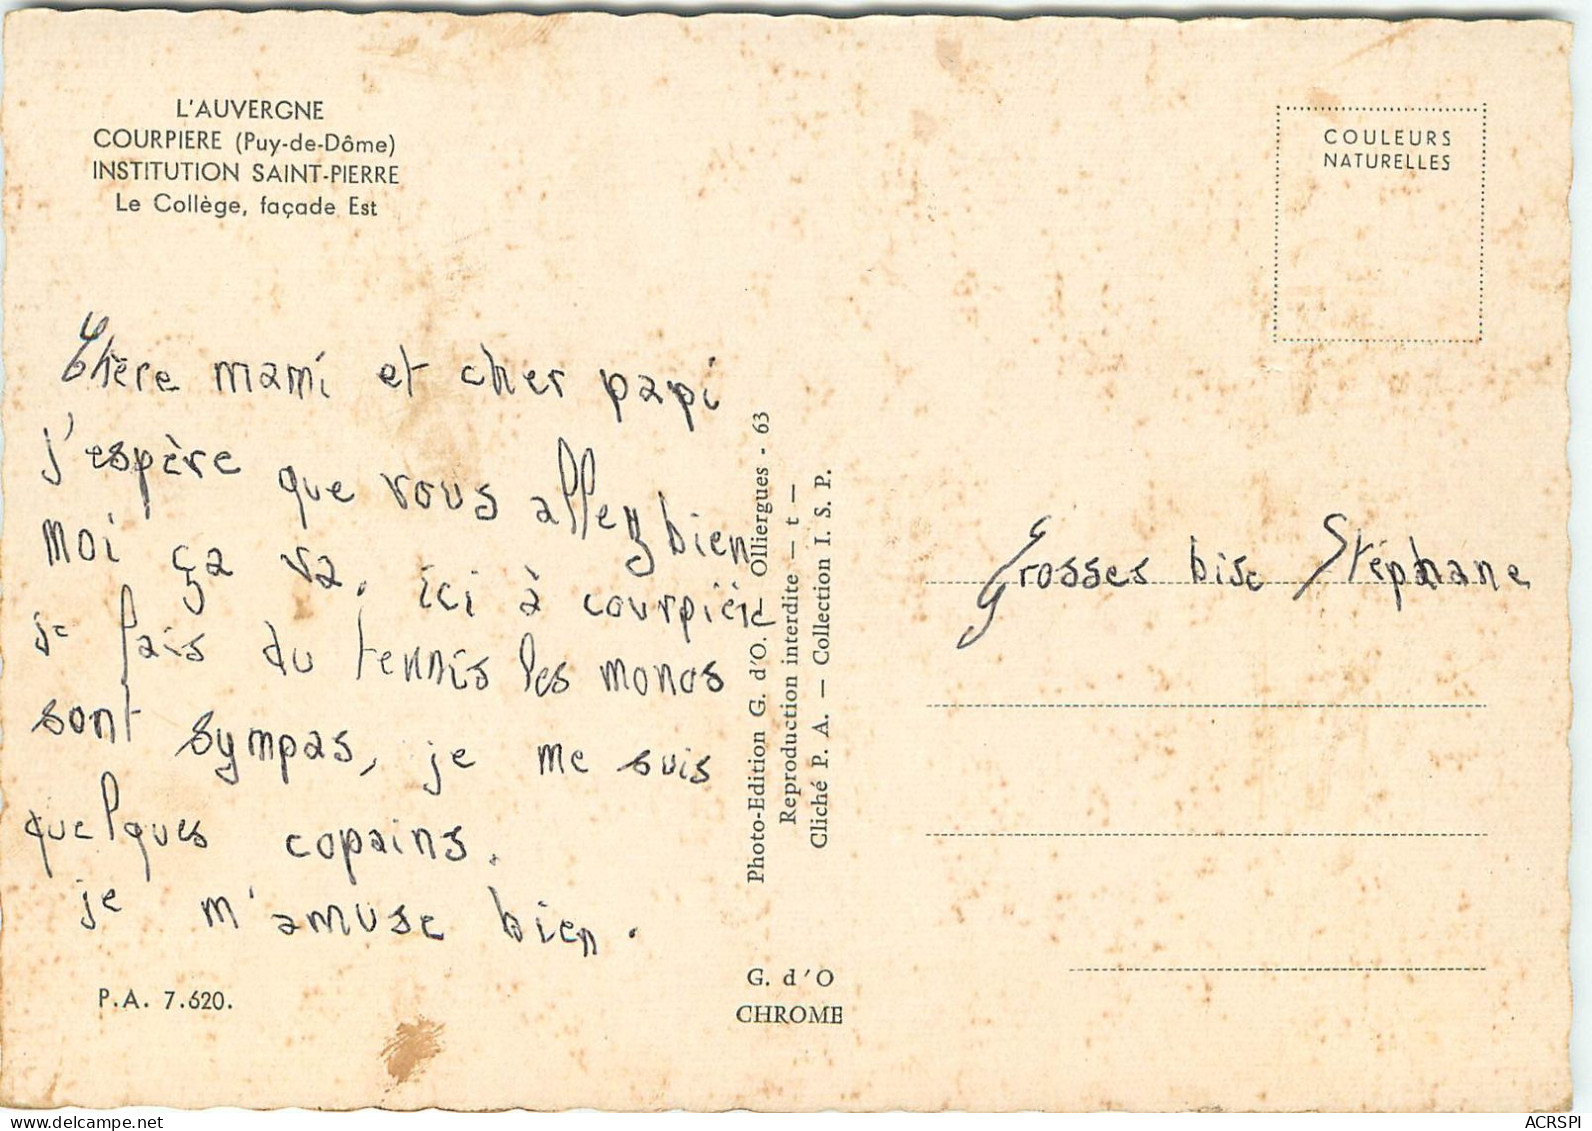 L'AUVERGNE
COURPIERE (Puy-de-Dôme)
INSTITUTION SAINT-PIERRE
Le Collège, façade Est
COULEURS
NATURELLES
Chère mami et cher papi
j'espère que vous allez bien
moi ça va, ici à courpière
je fais du tennis les monos
sont sympas, je me suis
quelques copains.
je m'amuse bien.
P.A. 7.620.
Photo-Edition G. d'O. Olliergues - 63
Reproduction interdite — t —
Cliché P. A. — Collection I. S. P.
G. d'O
CHROME
Grosses bise Stéphane
www.delcampe.net
ACRSPI